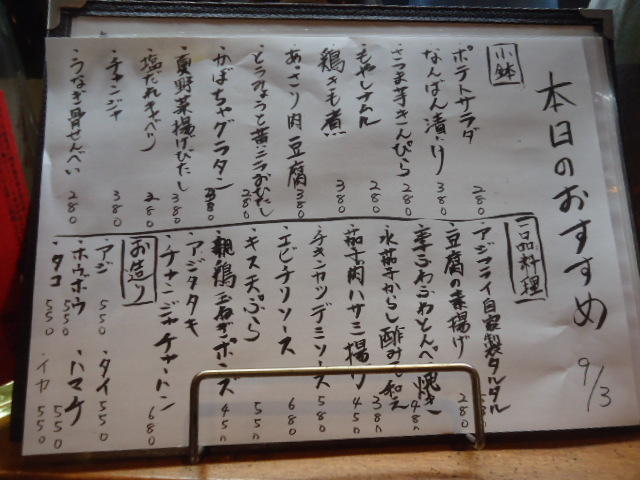 本日のおすすめ 9/3
小鉢
・ポテトサラダ 280
・なんばん漬け 380
・さつま芋きんぴら 280
・もやしナムル 280
・鶏きも煮 380
・あさり肉豆腐 380
・とうみょうと黄ニラおひたし 280
・かぼちゃグラタン 380
・夏野菜揚げびたし 380
・塩だれキャベツ 280
・チャンジャ 380
・うなぎ骨せんべい 280
一品料理
・アジフライ自家製タルタル
・豆腐の素揚げ 280
ふわふわとんぺい焼き 480
・水茄子からし酢みそ和え 380
・茄子肉ハサミ揚げ 450
・チキンカツデミソース 580
・エビチリソース 680
・キス天ぷら 550
・親鶏玉ねぎポンズ 450
・アジタタキ
・チャンジャチャーハン 680
お造り
・アジ 550 ・タイ 550
・ホウボウ 550 ・ハマチ 550
・タコ 550 ・イカ 550